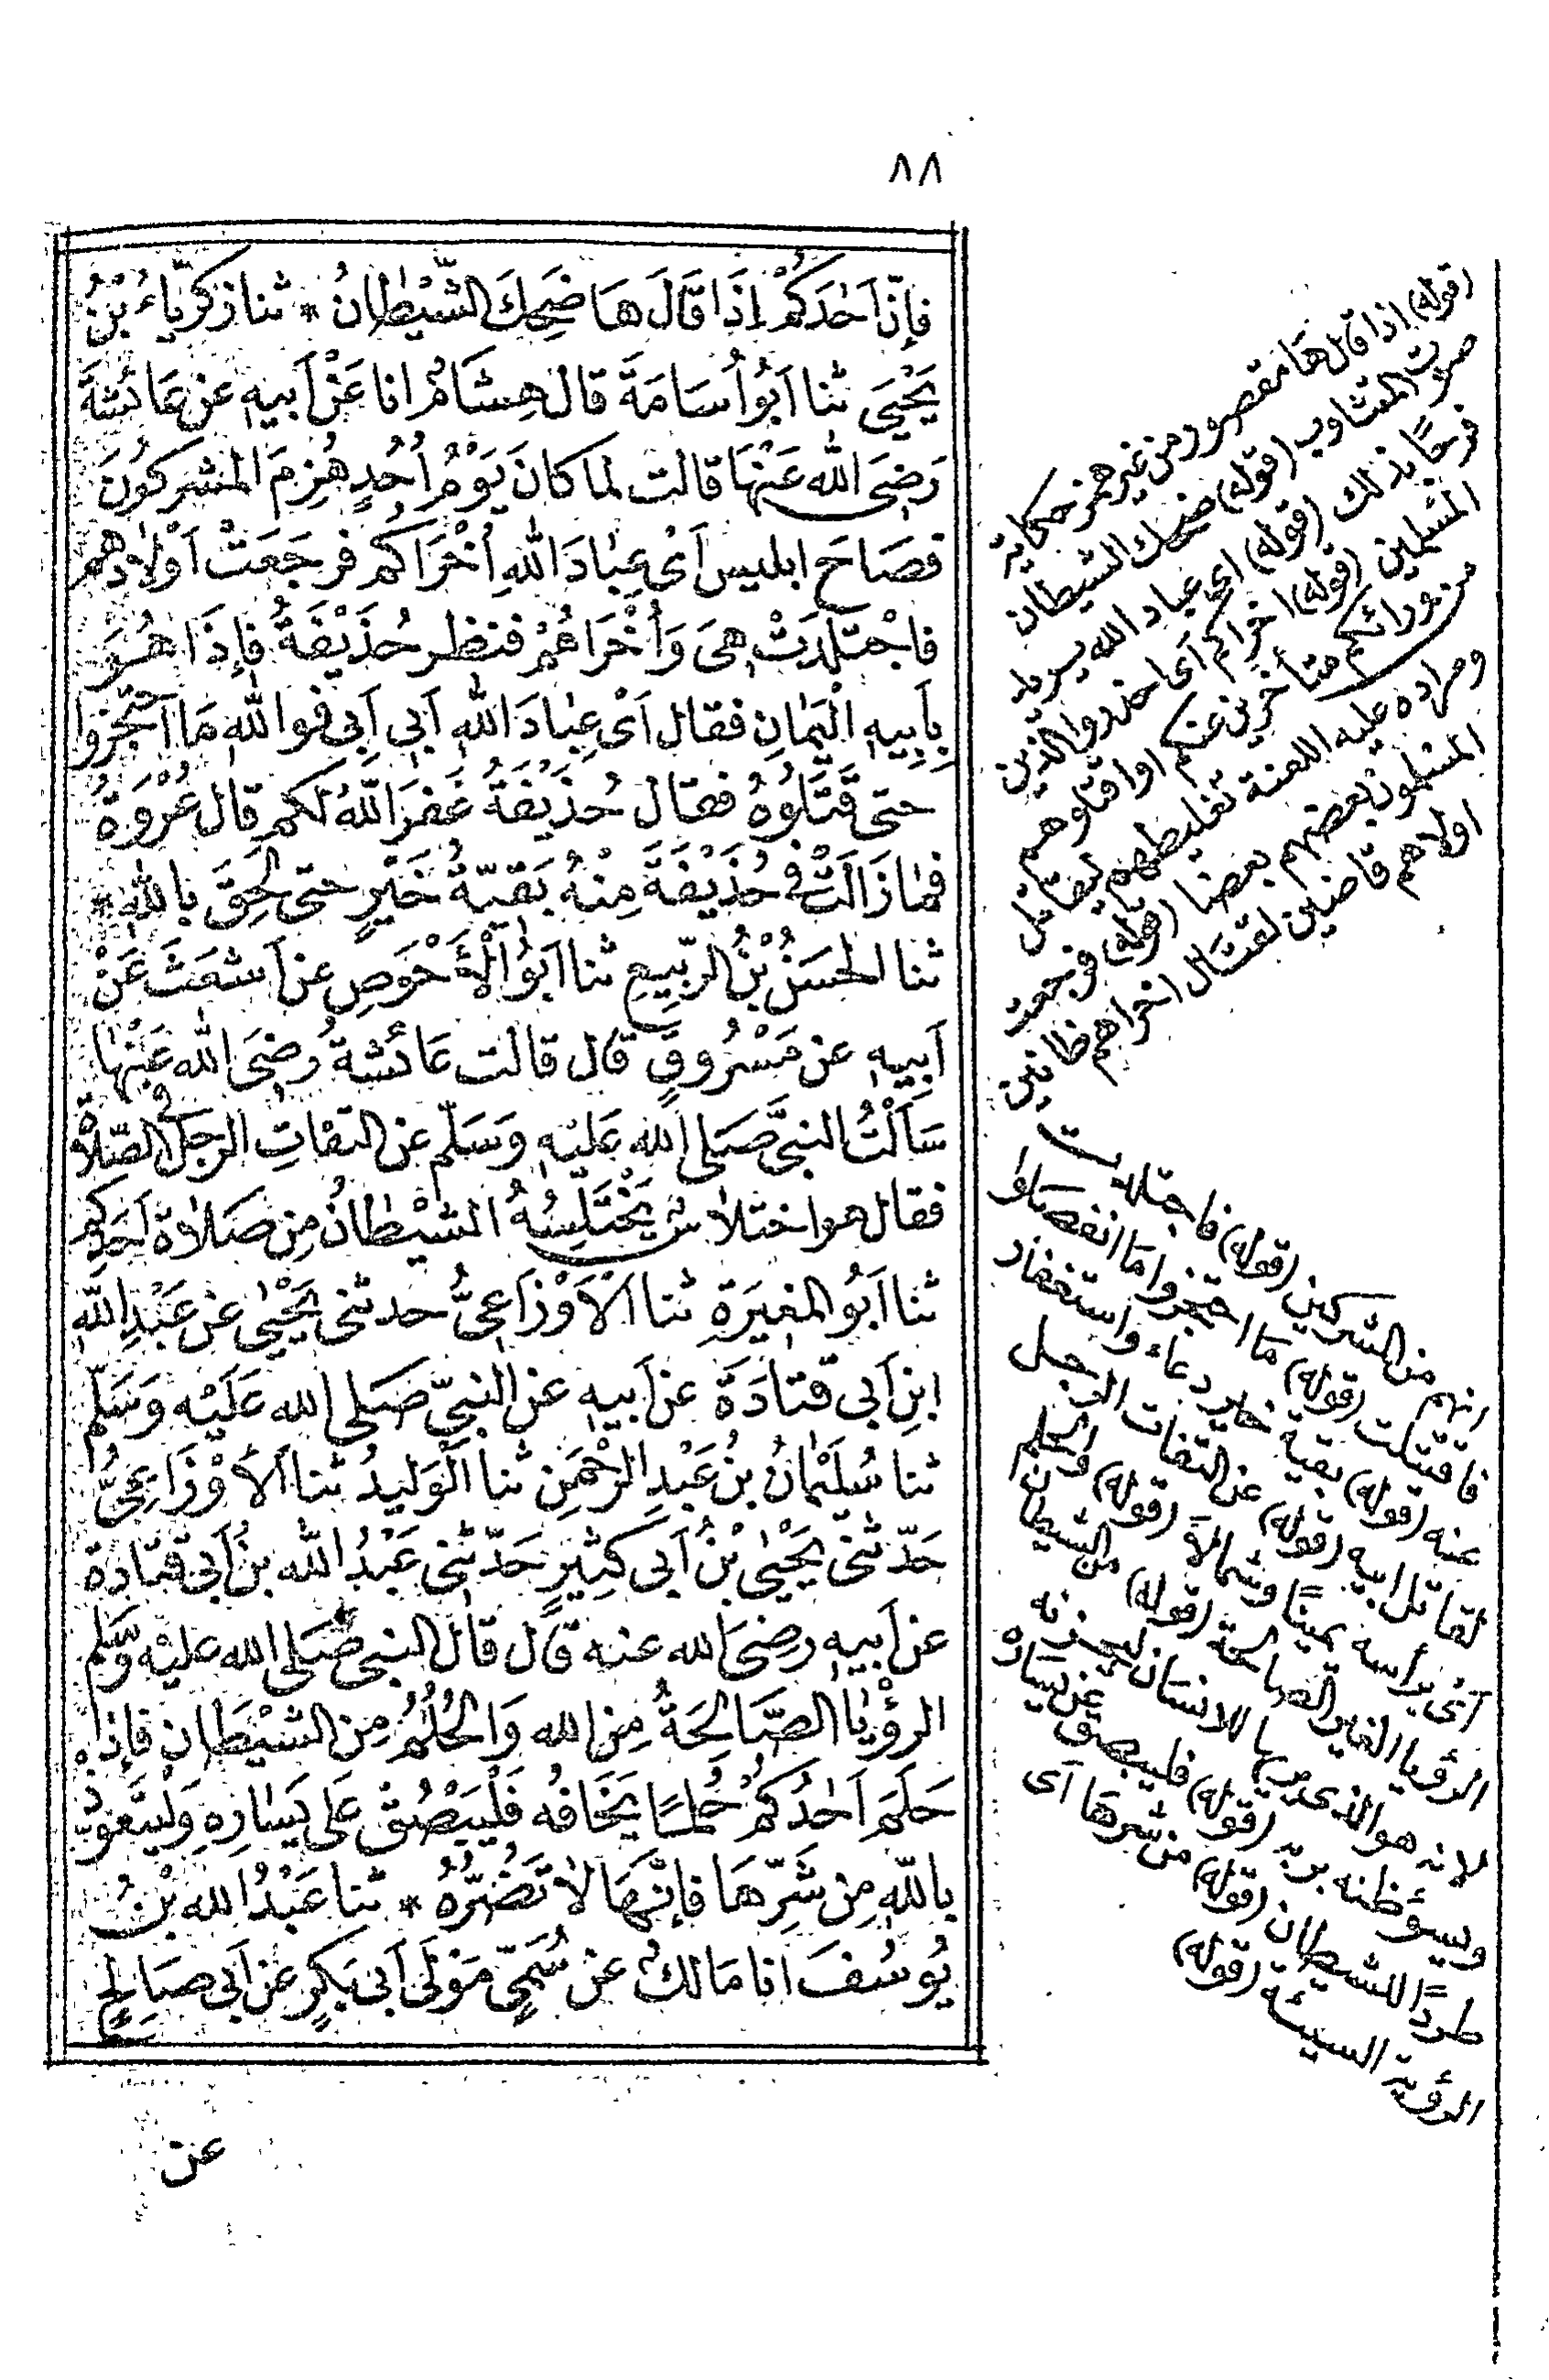 ٨٨
فَإِنَّ اَحَدَكُمْ اِذَا قَالَ هَا ضَحِكَ الشَّيْطٰانُ * ثنا زكَرِيّٰاءُ بْنُ
يَحْيَى ثنا اَبُو اُسَامَةَ قال هِشَامٌ انا عَنْ اَبيهِ عن عَائشَةَ
رَضِىَ الله عَنْهَا قالت لما كانَ يَوْمُ اُحُدٍ هُزِمَ المشركُونَ
فصَاحَ ابليس اَىْ عِبَادَ اللهِ اُخْرَاكُم فرجَعَتْ اُوْلاٰدهم
فاجْتَلَدَتْ هِىَ وَاُخْرَاهُمْ فنظر حُذَيْفَةُ فإِذَا هُوَ
بِاَبِيهِ الْيَمَانِ فقال اَىْ عِبَادَ اللهِ اَبِى اَبِى فواللهِ مَا احْتَجَزُوا
حتى قَتَلُوهُ فقال حُذَيْفَةُ غَفَرَ اللّهُ لكم قال عُرْوَةُ
فمٰا زَالَتْ فى حُذَيْفَةَ مِنْهُ بَقِيّةُ خَيْرٍ حتى لَحِقَ باللهِ *
ثنا الحَسَنُ بْنُ الرّبِيعِ ثنا اَبُو الْأَحْوَصِ عن اَشعَثَ عَنْ
اَبِيهِ عن مَسْرُوقٍ قال قالت عَائشةُ رضِىَ الله عَنْهٰا
سَاَلْتُ النبىَّ صَلى الله عَليْهِ وَسَلّم عن التفاتِ الرجل فى الصّلاٰة
فقال هو اختلاسٌ يَخْتَلِسُهُ الشيْطٰانُ مِن صَلاٰة اَحَدِكم
ثنا اَبُو المغيرَةِ ثنا الْاَوْزَاعِىُّ حدثنى يَحْيٰى عن عَبْدِ اللّه
ابنِ اَبى قتادَةَ عن اَبيهِ عن النبىِّ صَلى الله عَلَيْه وَسَلّم
ثنا سُلَيْمٰانُ بنُ عَبْدِ الرّحْمَنِ ثنا الْوَليدُ ثنا الْأَوْزَاعِىُّ
حَدّثنى يَحْيٰى بْنُ اَبى كثِيرٍ حَدّثنى عَبْدُ الله بنُ اَبى قتَادَة
عن اَبيهِ رضِىَ الله عنه قال قال النبى صَلى الله عليْه وسَلّم
الرؤْيٰا الصَّالِحَةُ مِن الله وَالحُلُمُ مِن الشيْطَانِ فإِذا
حَلَمَ اَحَدُكُمْ حُلمًا يَخَافُهُ فَلْيَبْصُقْ عَلى يَسٰارِهِ وَلْيَتَعَوّذْ
باللّهِ مِن شَرِّهَا فإِنّهَا لاٰ تَضُرُّهُ * ثنا عَبْدُ الله بْنُ
يُوسُفَ انا مَالكٌ عن سُمَىٍّ مَوْلَى اَبى بَكرٍ عن اَبى صَالحٍ
عن
(قوله) اذا قال ها مقصور من غير همز حكاية
صوت المتثاوب (قوله) ضحك الشيطان
فرحًا بذلك (قوله) اى عباد الله يريد
المسلمين (قوله) اخراكم اى احذروا الذين
من ورائكم متأخرين عنكم او اقتلوهم
ومراده عليه اللعنة تغليطهم ليقاتل
المسلمون بعضهم بعضا (قوله) فرجعت
اولاهم قاصدين لقتال اخراهم ظانين
انهم من المشركين (قوله) فاجتلدت
فاقتتلت (قوله) ما احتجزوا ما انفصلوا
عنه (قوله) بقية خير دعاء واستغفار
لقاتل ابيه (قوله) عن التفات الرجل
اى برأسه يمينًا وشمالًا (قوله) والحلم
الرؤيا الغير الصالحة (قوله) من الشيطان
لانه هو الذى يريها للانسان ليحزنه
ويسؤ ظنه بربه (قوله) فليبصق عن يساره
طردًا للشيطان (قوله) من شرها اى
الرؤية السيئة (قوله)